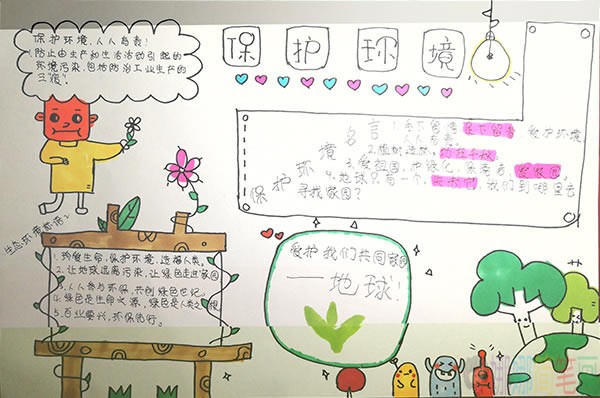 保护环境
保护环境,人人有责!
防止由生产和生活活动引起的
环境污染,包括防治工业生产的
三废!
保护环境名言
1.手下留情 足下留青 爱护环境,
人人有责
2.植树造林,功在千秋
3.爱祖国,地绿化,保南方,
4.地球只有一个,我们到哪里去
寻找家园?
生态环境标语:
1.珍爱生命,保护环境,造福人类。
2.让地球远离污染,让绿色走进家园
3.人人参与环保,共创绿色世纪。
4.绿色是生命之源,绿色是人类之根
5.百业要兴,环保先行。
爱护我们共同家园
——地球!